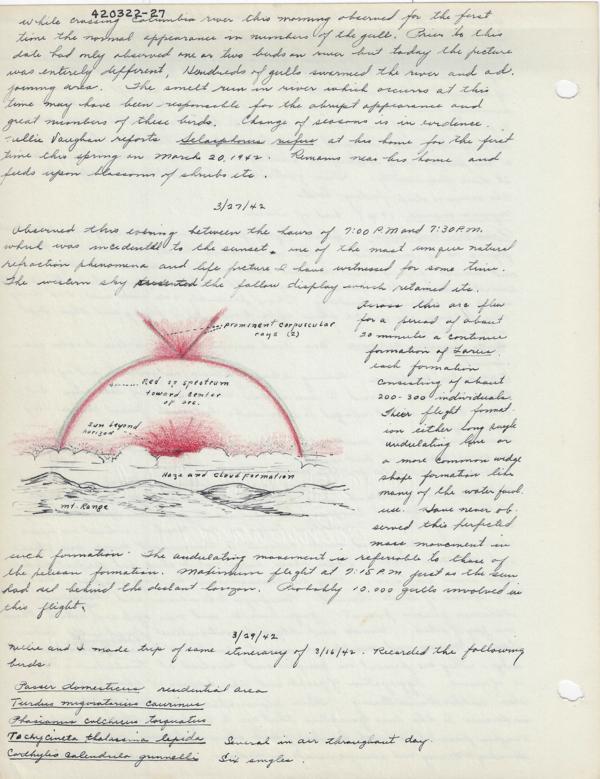 420322-27
While crossing Columbia river this morning observed for the first
time the normal appearance in numbers of the gull. Prior to this
date had only observed one or two birds on river but today the picture
was entirely different, Hundreds of gulls swarmed the river and ad-
joining area. The smelt run in river which occurs at this
time may have been responsible for the abrupt appearance and
great numbers of these birds. Change of seasons is in evidence.
Vaughan reports Selasphorus rufus at his home for the first
time this spring on March 20, 1942. Remains near his home and
feeds upon blossoms of shrubs etc.
3/27/42
Observed this evening between the hours of 7:00 P.M and 7:30 P.M.
which was incidental to the sunset, one of the most unique natural
refraction phenomena and life picture I have witnessed for some time.
The western sky presented the follow display which retained its.
prominent corpuscular
rays (2)
Red of spectrum
toward center
of arc.
Sun beyond
horizon
Haze and Cloud formation
Mt. Range
Across this arc flew
for a period of about
20 minutes a continue
formation of Larus.
each formation
consisting of about
200-300 individuals.
Their flight format-
ion either long single
undulating line or
a more common wedge
shape formation like
many of the water fowl
use. Have never ob-
served this perfected
mass movement in
such formation. The undulating movement is referable to those of
the pelican formation. Maximum flight at 7:15 P.M just as the sun
had set behind the distant horizon. Probably 10,000 gulls involved in
this flight.
3/29/42
Nellie and I made trip of same itinerary of 3/16/42. Recorded the following
birds:
Passer domesticus residential area
Turdus migratorius caurinus
Phasianus colchicus torquatus
Tachycineta thalassina lepida Several in air throughout day.
Corthylio calendula grinnelli Six singles.